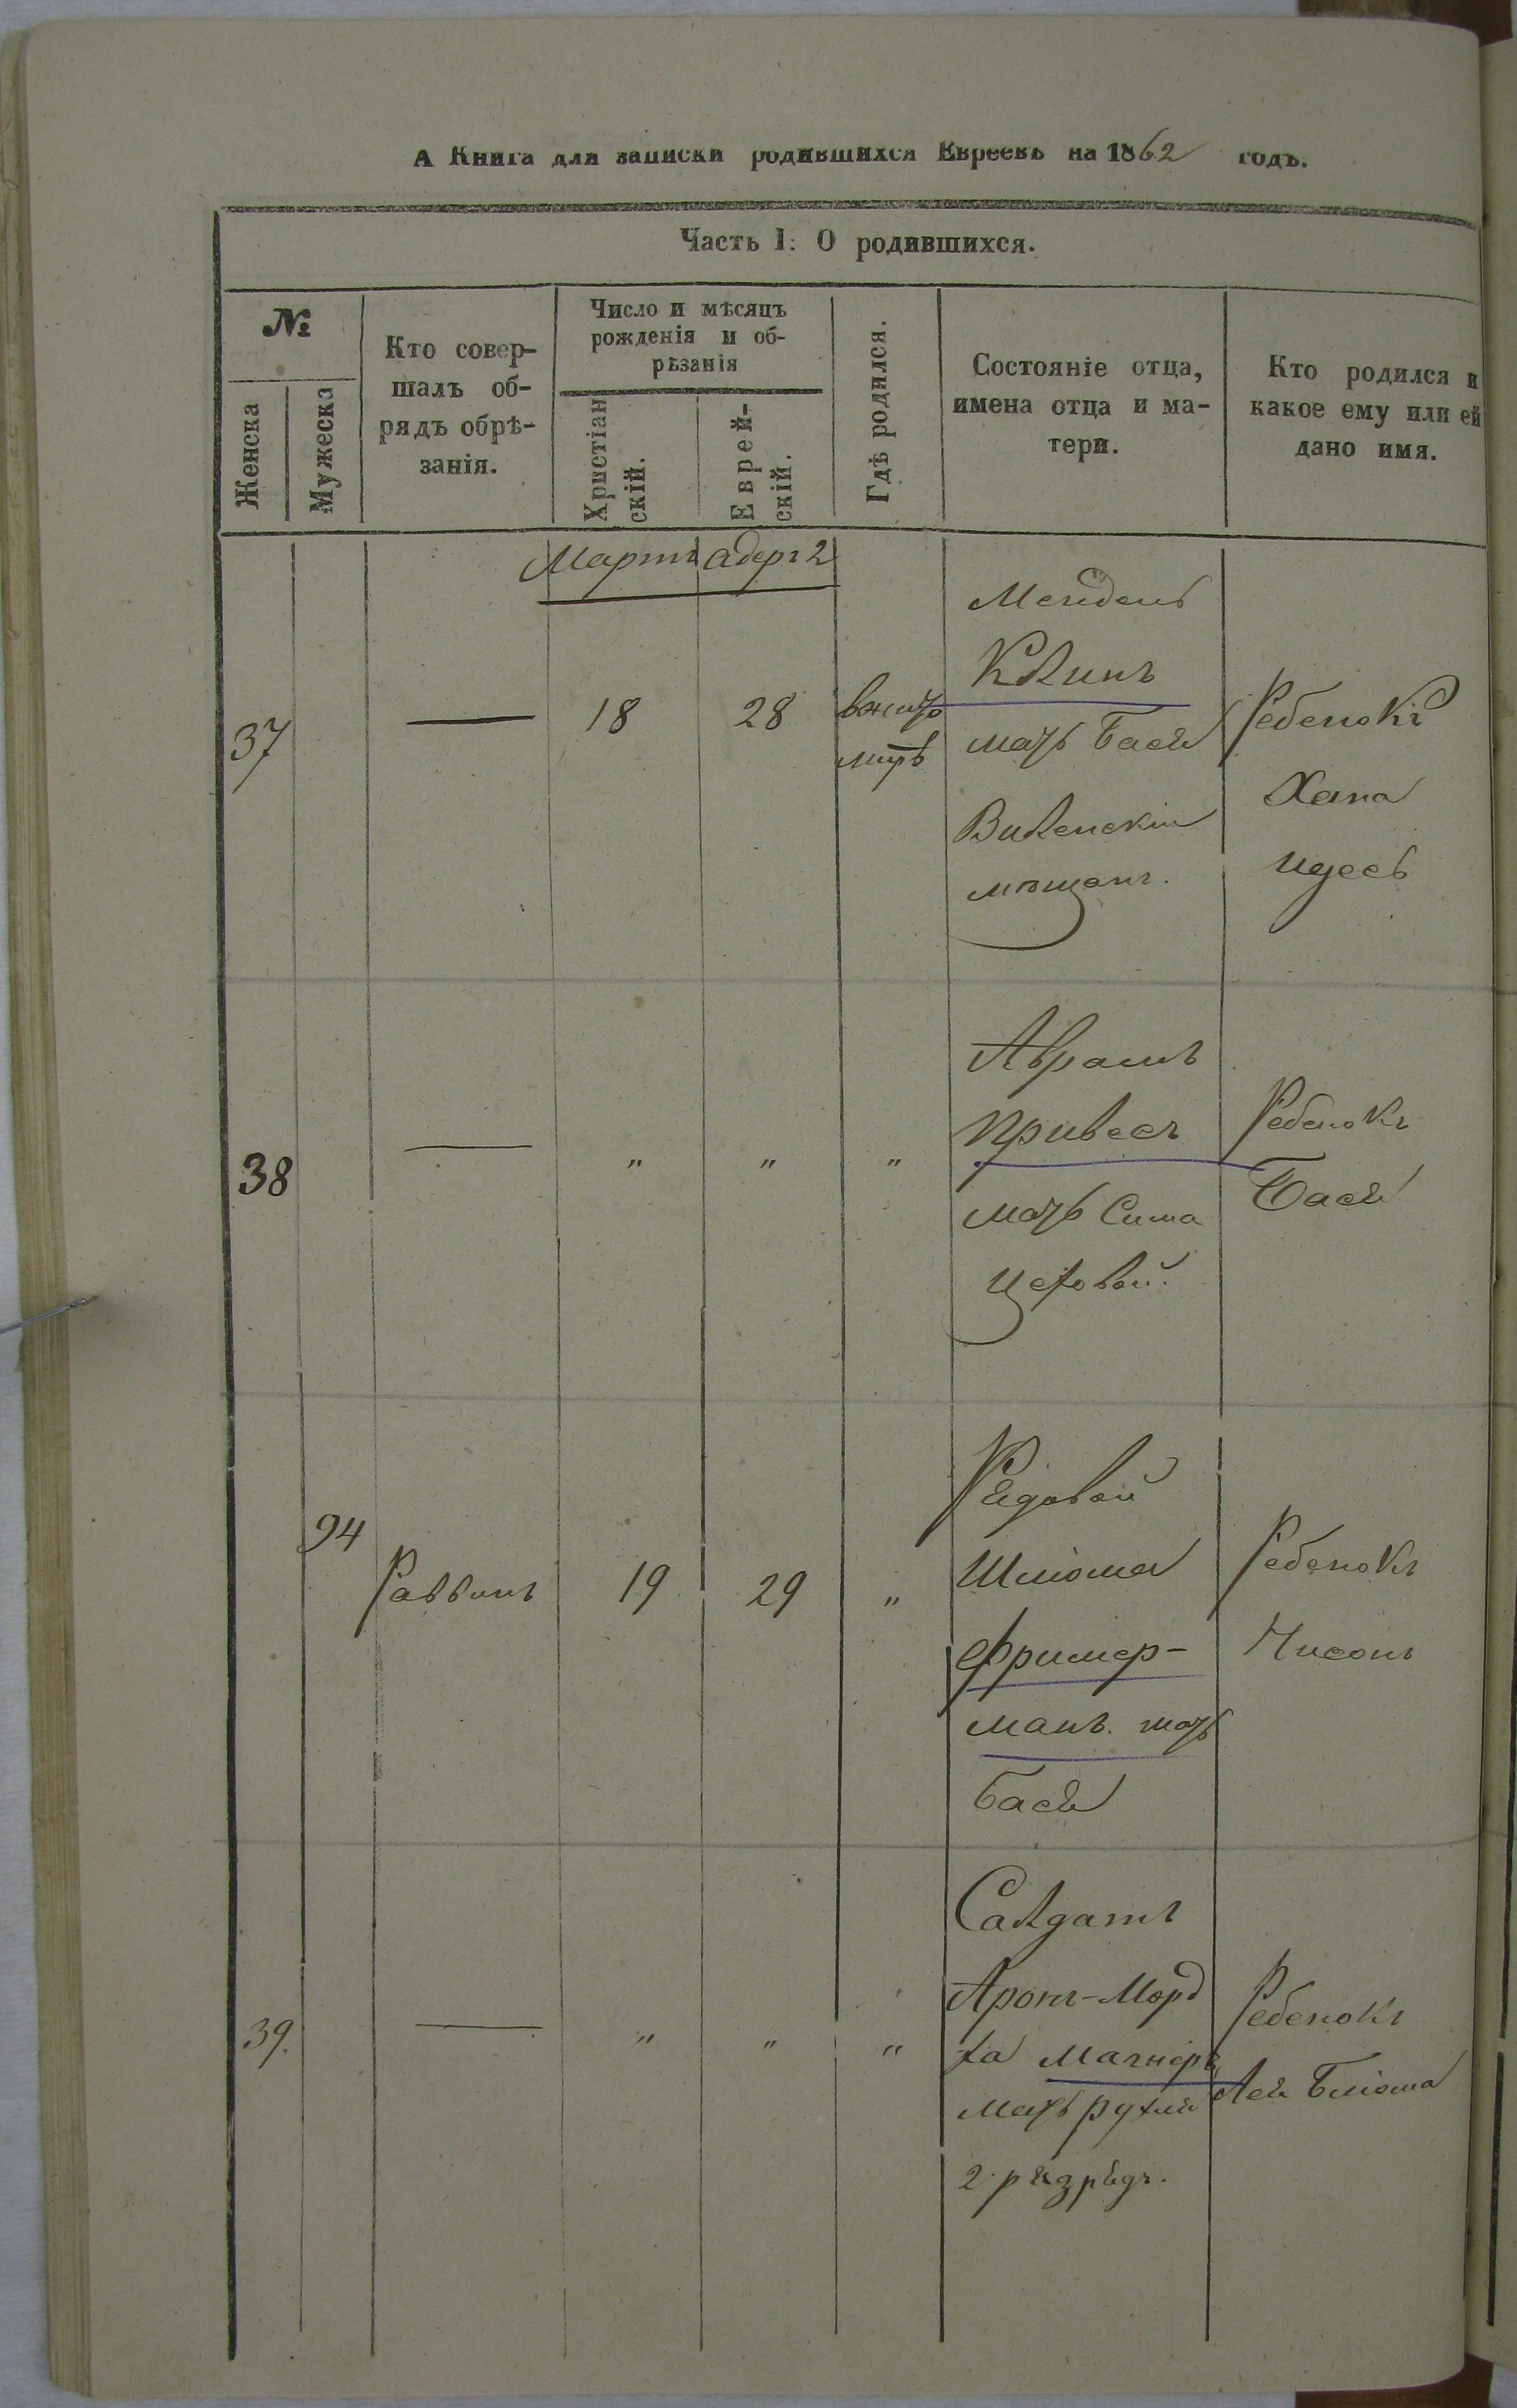 А Книга для записки родившихся Евреевъ на 1862 годъ.
Часть I. О родившихся.
№
Женска
Мужеска
Кто совер-
шалъ об-
рядъ обрѣ-
занія.
Число и мѣсяцъ
рожденія и об-
рѣзанія
Христіан
скій.
Еврей-
скій.
Гдѣ родился.
Состояніе отца,
имена отца и ма-
тери.
Кто родился и
какое ему или ей
дано имя.
Мартъ адеръ 2
37
—
18
28
вжито
миръ
Мендель
Клинъ
мать Бася
Виленскій
мѣщанъ.
Ребенокъ
Хана
Идесъ
38
—
"
"
"
Абрамъ
Привесъ
мать Сима
Цеховой.
Ребенокъ
Бася
94
Раввинъ
19
29
"
Рядовой
Шліома
Фример-
манъ. мать
Бася
Ребенокъ
Нисонъ
39.
—
"
"
"
Салдатъ
Аронъ-Морд
ха Магнеръ
мать Рухля
2 рязрядъ.
Ребенокъ
Лея Бліома